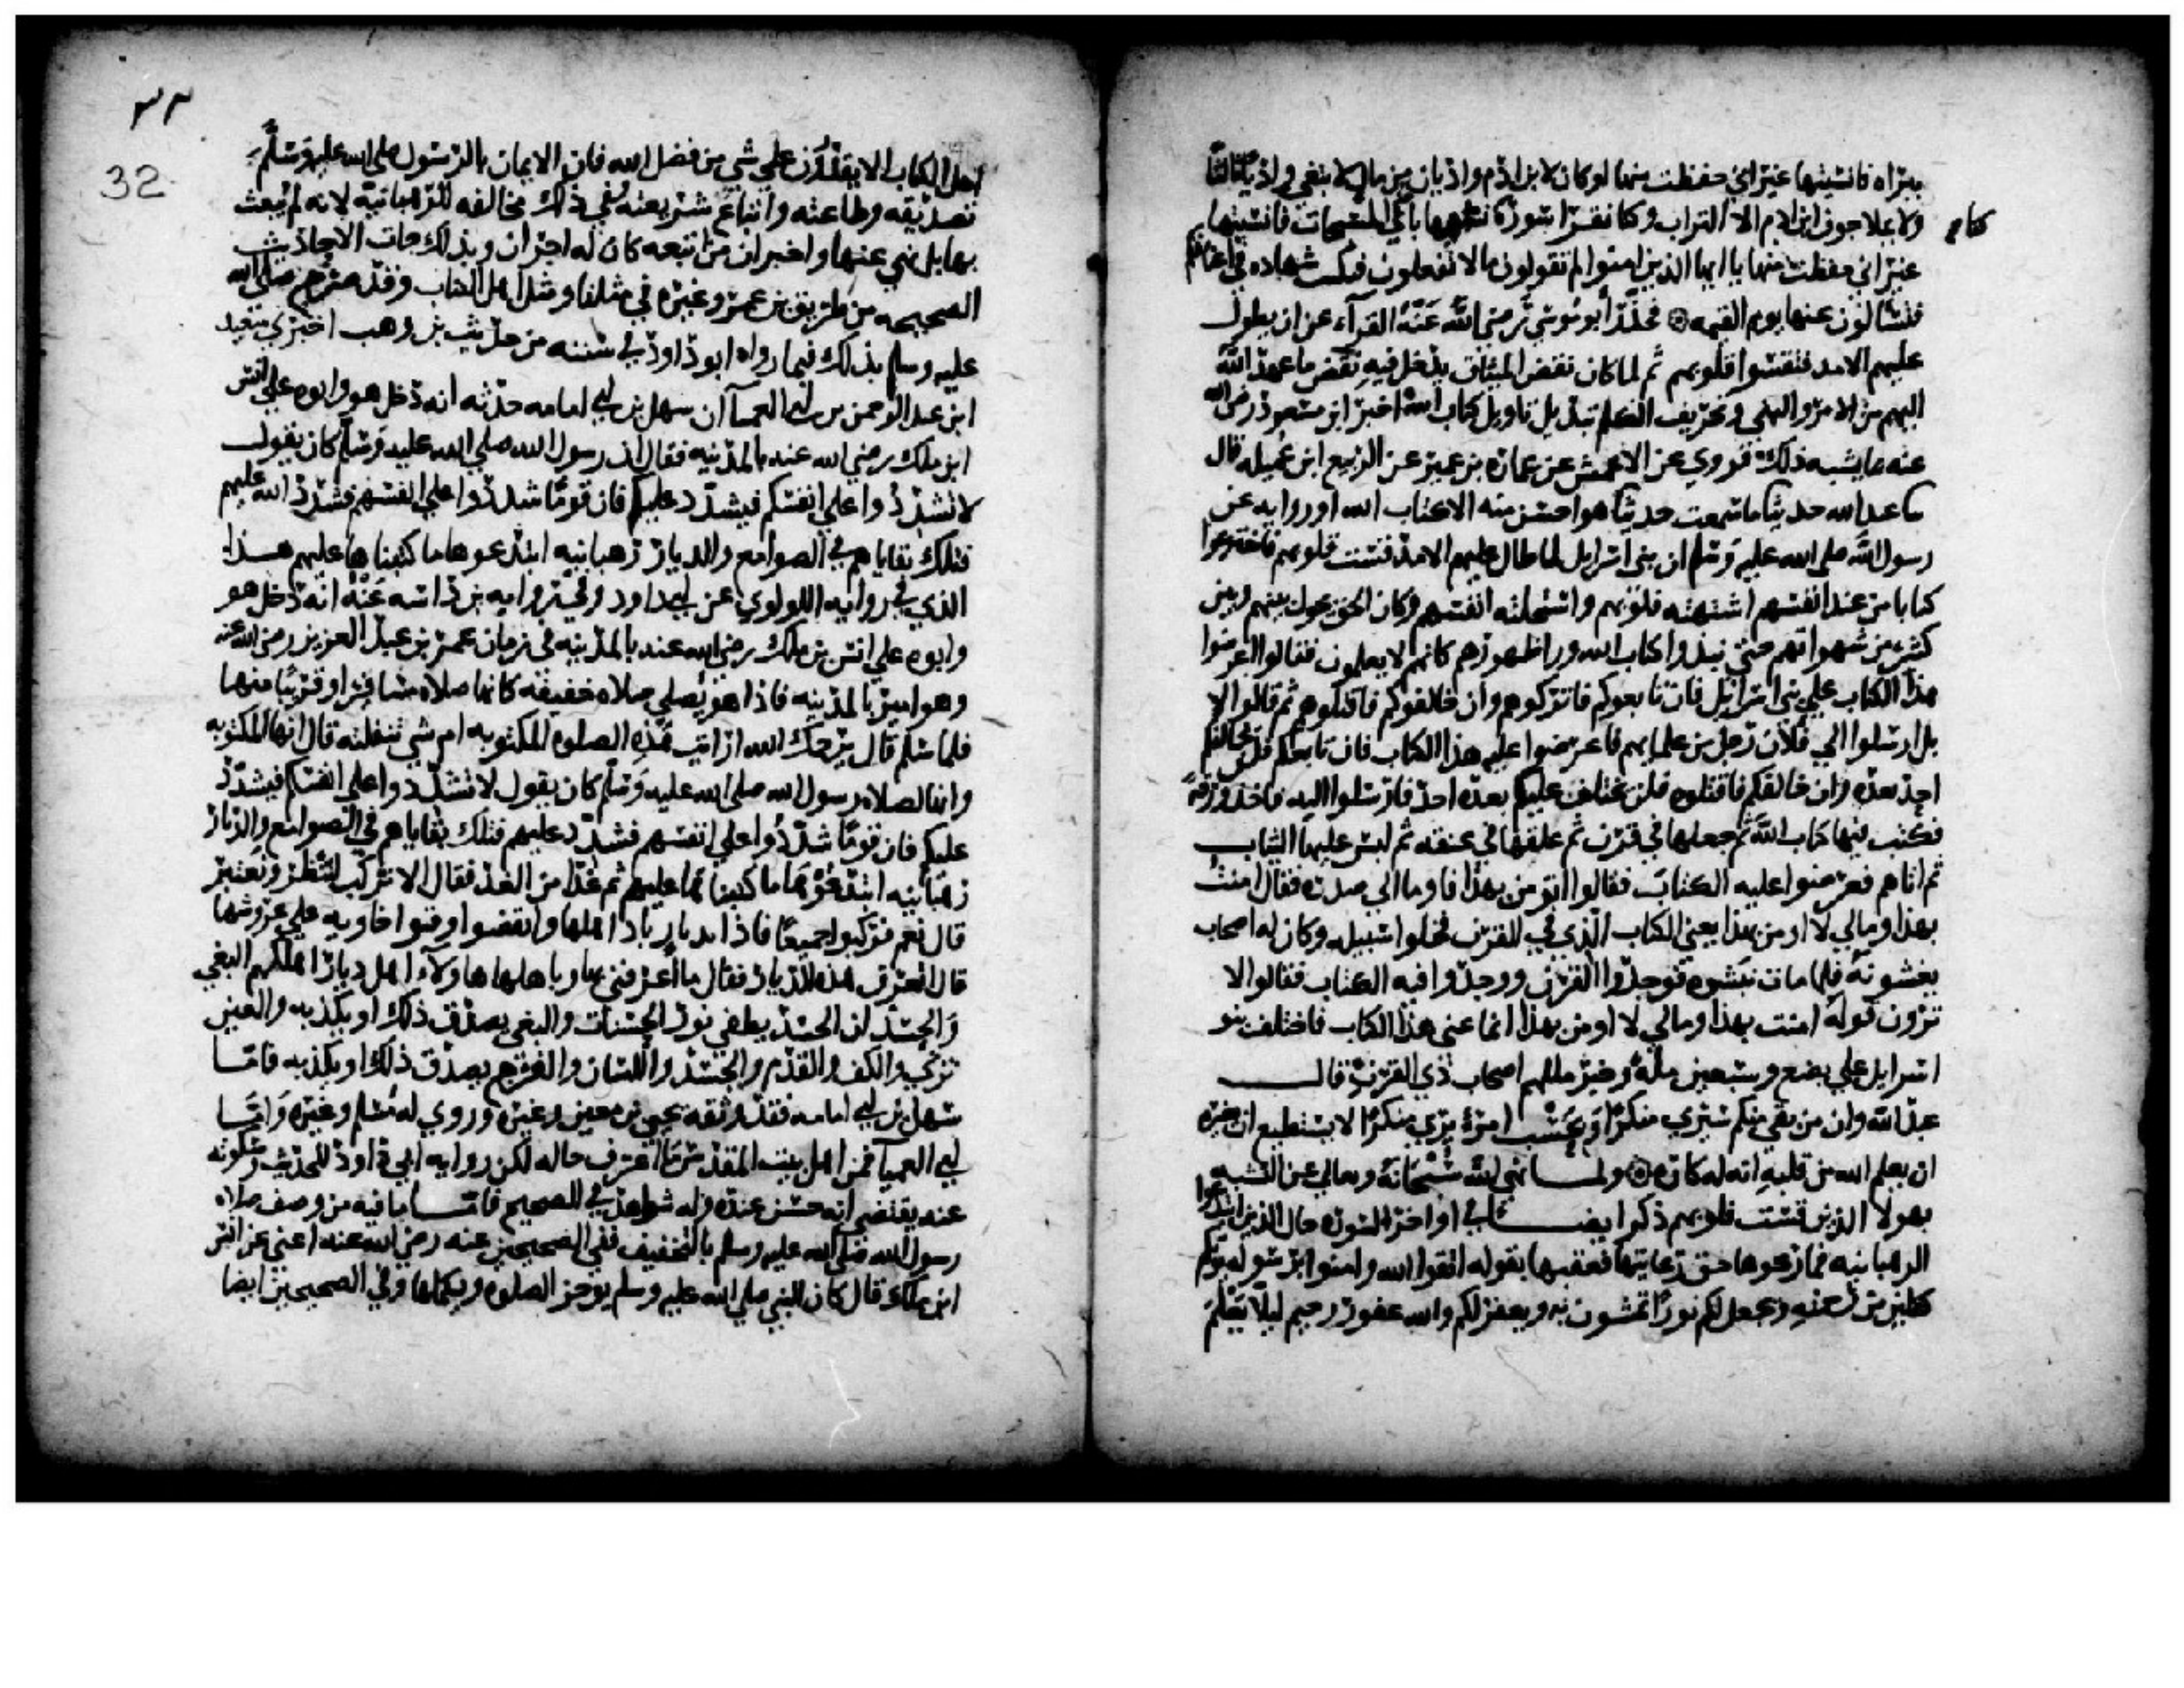 ببراه فانسيتها غير اني حفظت منها لو كان لابن ادم واديان من مال لابتغى واديا ثالثا
ولا يملا جوف ابن ادم الا التراب وكنا نقرا سورة نشبهها باحدى المسبحات فانسيتها
غير اني حفظت منها يا ايها الذين امنوا لم تقولون ما لا تفعلون فتكتب شهاده في اعناقكم
فتسالون عنها يوم القيمه فحذر ابو موسى رضي الله عنه القرآء عن ان يطول
عليهم الامد فتقسوا قلوبهم ثم لما كان نقض الميثاق يدخل فيه نقض ما عهد الله
اليهم من الامر والنهي وتحريف الكلم تبديل تاويل كتاب الله اخبر ابن مسعود رضي الله
عنه بما يشبه ذلك فروي عن الاعمش عن عمارة بن عمير عن الربيع ابن عميله قال
ثنا عبد الله حديثا ما سمعت حديثا هو احسن منه الا كتاب الله او روايه عن
رسول الله صلى الله عليه وسلم ان بني اسرايل لما طال عليهم الامد فقست قلوبهم فاخترعوا
كتابا من عند انفسهم اشتهته قلوبهم واستحلته انفسهم وكان الحق يحول بينهم وبين
كثير من شهواتهم حتى نبذوا كتاب الله ورا ظهورهم كانهم لا يعلمون فقالوا اعرضوا
هذا الكتاب على بني اسرائيل فان تابعوكم فاتركوهم وان خالفوكم فاقتلوهم ثم قالوا لا
بل ارسلوا الى فلان رجل من علمايهم فاعرضوا عليه هذا الكتاب فان تابعكم فلن يخالفكم
احد بعده وان خالفكم فاقتلوه فلن يختلف عليكم بعده احد فارسلوا اليه فاخذ ورقة
فكتب فيها كتاب الله ثم جعلها في قرن ثم علقها في عنقه ثم لبس عليها الثياب
ثم اتاهم فعرضوا عليه الكتاب فقالوا اتومن بهذا فاوما الى صدره فقال امنت
بهذا ومالي لا اومن بهذا يعني الكتاب الذي في القرن فخلوا سبيله وكان له اصحاب
يغشونه فلما مات نبشوه فوجدوا القرن ووجدوا فيه الكتاب فقالوا الا
ترون قوله امنت بهذا ومالي لا اومن بهذا انما عنى هذا الكتاب فاختلف بنو
اسرايل على بضع وسبعين مله وخير مللهم اصحاب ذي القرن قال
عبد الله وان من بقي منكم سيرى منكرا وبحسب امرئ يرى منكرا لا يستطيع ان يغيره
ان يعلم الله من قلبه انه له كاره ولما نهى الله سبحانه وتعالى عن التشبه
بهولا الذين قست قلوبهم ذكر ايضا في اواخر السورة حال الذين ابتدعوا
الرهبانيه فما رعوها حق رعايتها فعقبها بقوله اتقوا الله وامنوا برسوله يوتكم
كفلين من رحمته ويجعل لكم نورا تمشون به ويغفر لكم والله غفور رحيم ليلا يعلم
٣٢
32
اهل الكتاب الا يقدرون على شي من فضل الله فان الايمان بالرسول صلى الله عليه وسلم
تصديقه وطاعته واتباع شريعته وفي ذلك مخالفه للرهبانية لانه لم يبعث
بها بل نهى عنها واخبر ان من تبعه كان له اجران وبذلك جات الاحاديث
الصحيحه من طريق بن عمر وغيره في مثلنا ومثل اهل الكتاب وقد صرح صلى الله
عليه وسلم بذلك فيما رواه ابو داود في سننه من حديث بن وهب اخبرني سعيد
ابن عبد الرحمن بن ابي العميآ ان سهل بن ابي امامه حدثه انه دخل هو وابوه على انس
ابن ملك رضي الله عنه بالمدينه فقال ان رسول الله صلى الله عليه وسلم كان يقول
لا تشددوا على انفسكم فيشدد عليكم فان قوما شددوا على انفسهم فشدد الله عليهم
فتلك بقاياهم في الصوامع والديار رهبانيه ابتدعوها ما كتبناها عليهم هذا
الذي في روايه اللولوي عن ابي داود وفي روايه بن داسه عنه انه دخل هو
وابوه على انس بن ملك رضي الله عنه بالمدينه في زمان عمر بن عبد العزيز رضي الله عنه
وهو امير بالمدينه فاذا هو يصلي صلاة خفيفة كانها صلاة مسافر او قريبا منها
فلما سلم قال يرحمك الله ارايت هذه الصلوة المكتوبه ام شي تنفلته قال انها المكتوبه
وانها لصلاة رسول الله صلى الله عليه وسلم كان يقول لا تشددوا على انفسكم فيشدد
عليكم فان قوما شددوا على انفسهم فشدد عليهم فتلك بقاياهم في الصوامع والديار
رهبانيه ابتدعوها ما كتبناها عليهم ثم غدا من الغد فقال الا تركب لتنظر وتعتبر
قال نعم فركبوا جميعا فاذا بديار باد اهلها وانقضوا وفنوا خاويه على عروشها
قال اتعرف هذه الديار فقال ما اعرفني بها وباهلها هاولآء اهل ديار اهلكهم البغي
والحسد ان الحسد يطفي نور الحسنات والبغي يصدق ذلك او يكذبه والعين
تزني والكف والقدم والجسد واللسان والفرج يصدق ذلك او يكذبه فاما
سهل بن ابي امامه فقد وثقه يحيى بن معين وغيره وروى له مسلم وغيره واما
ابي العميا فمن اهل بيت المقدس ما اعرف حاله لكن روايه ابي داود للحديث وسكوته
عنه يقتضي انه حسن عنده وله شواهد في الصحيح فاما ما فيه من وصف صلاه
رسول الله صلى الله عليه وسلم بالتخفيف ففي الصحيحين عنه رضي الله عنه اعني عن انس
ابن ملك قال كان النبي صلى الله عليه وسلم يوجز الصلوه ويكملها وفي الصحيحين ايضا